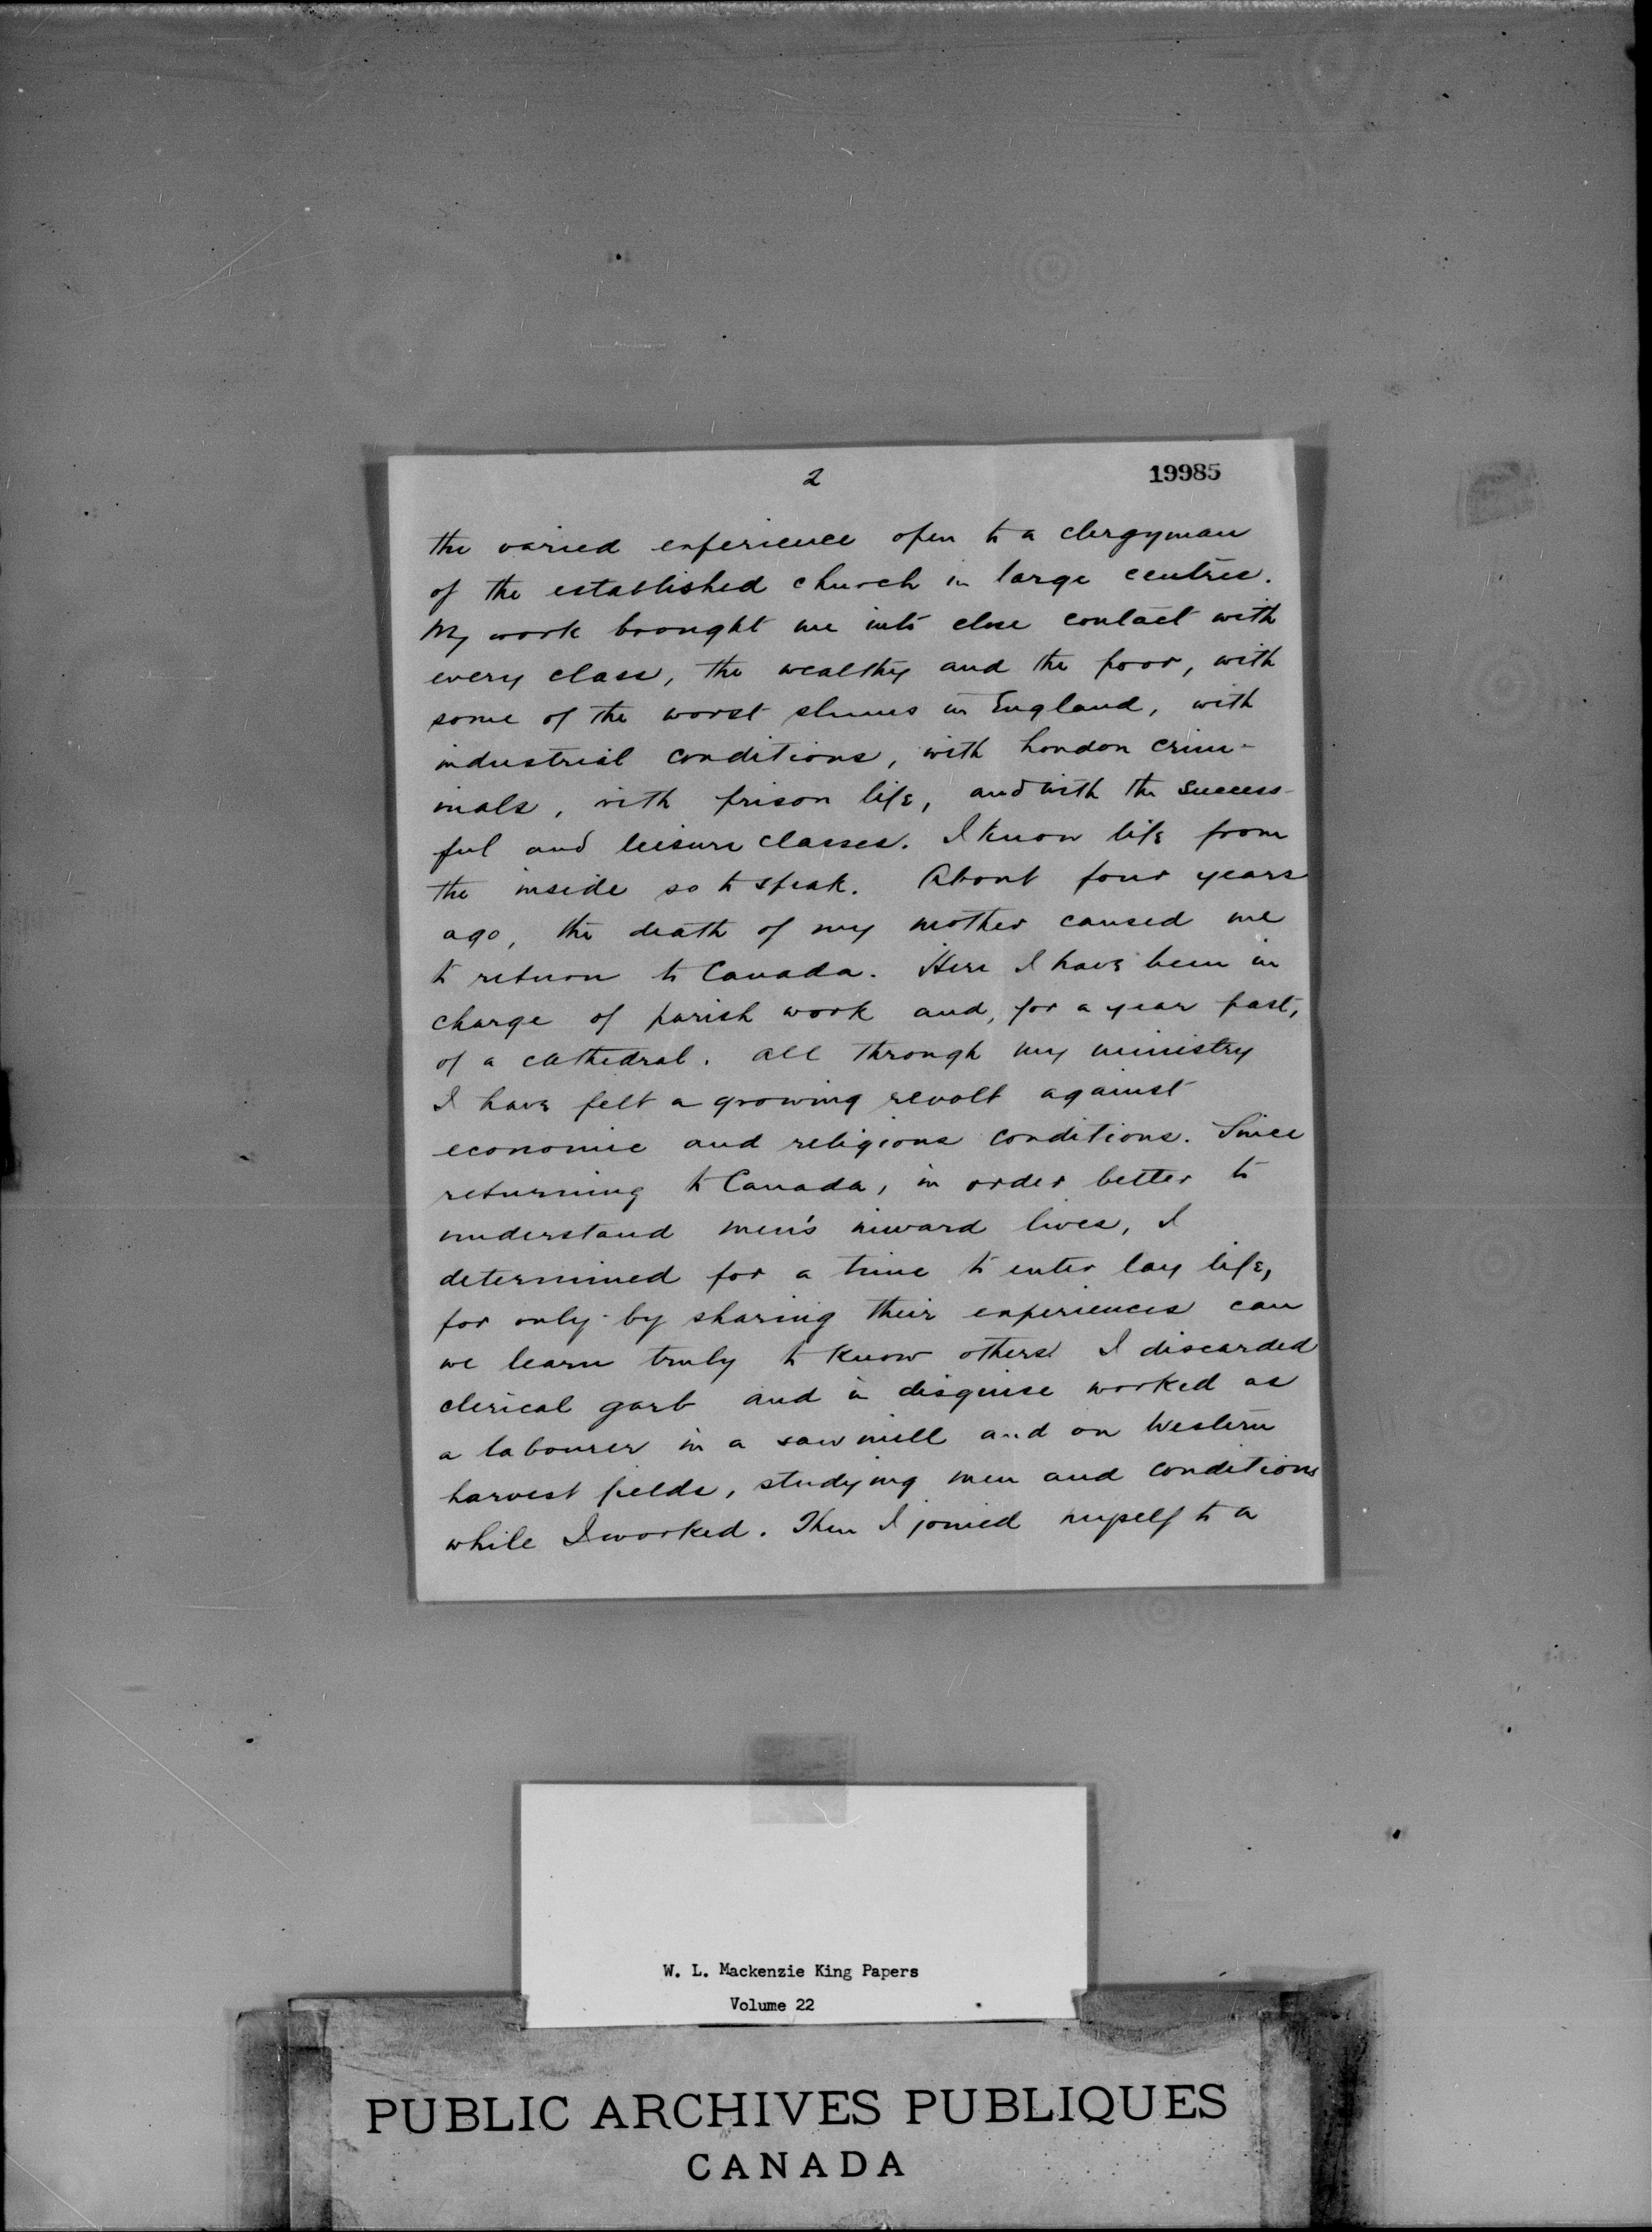 2
19985
the varied experience open to a clergyman
of the established church in large centres.
My work brought me into close contact with
every class, the wealthy and the poor, with
some of the worst slums in England, with
industrial conditions, with London crim-
inals, with prison life, and with the success-
ful and leisure classes. I know life from
the inside so to speak. About four years
ago, the death of my mother caused me
to return to Canada. Here I have been in
charge of parish work and, for a year past,
of a cathedral. All through my ministry
I have felt a growing revolt against
economic and religious conditions. Since
returning to Canada, in order better to
understand men's inward lives, I
determined for a time to enter lay life,
for only by sharing their experiences can
we learn truly to know others. I discarded
clerical garb and in disguise worked as
a labourer in a saw mill and on Western
harvest fields, studying men and conditions
while I worked. Then I joined myself to a
W. L. Mackenzie King Papers
Volume 22
PUBLIC ARCHIVES PUBLIQUES
CANADA